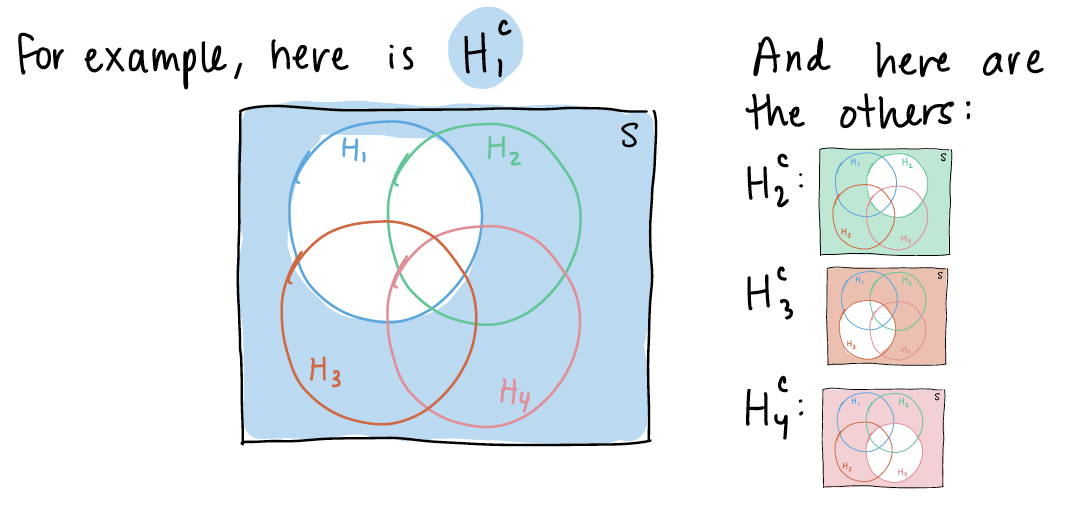 For example, here is H₁ᶜ
S
H₁
H₂
H₃
H₄
And here are
the others:
H₂ᶜ:
H₁
H₂
S
H₃
H₄
H₃ᶜ
H₁
H₂
S
H₃
H₄
H₄ᶜ:
H₁
H₂
S
H₃
H₄